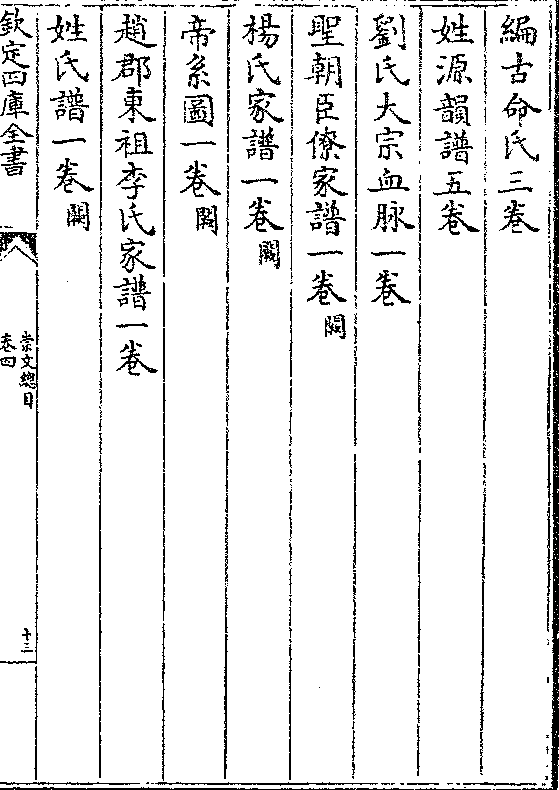 編古命氏三卷
姓源韻譜五卷
劉氏大宗血脉一卷
聖朝臣僚家譜一卷闕
楊氏家譜一卷闕
帝系圖一卷闕
趙郡東祖李氏家譜一卷
姓氏譜一卷闕
欽定四庫全書
崇文總目
卷四
十三